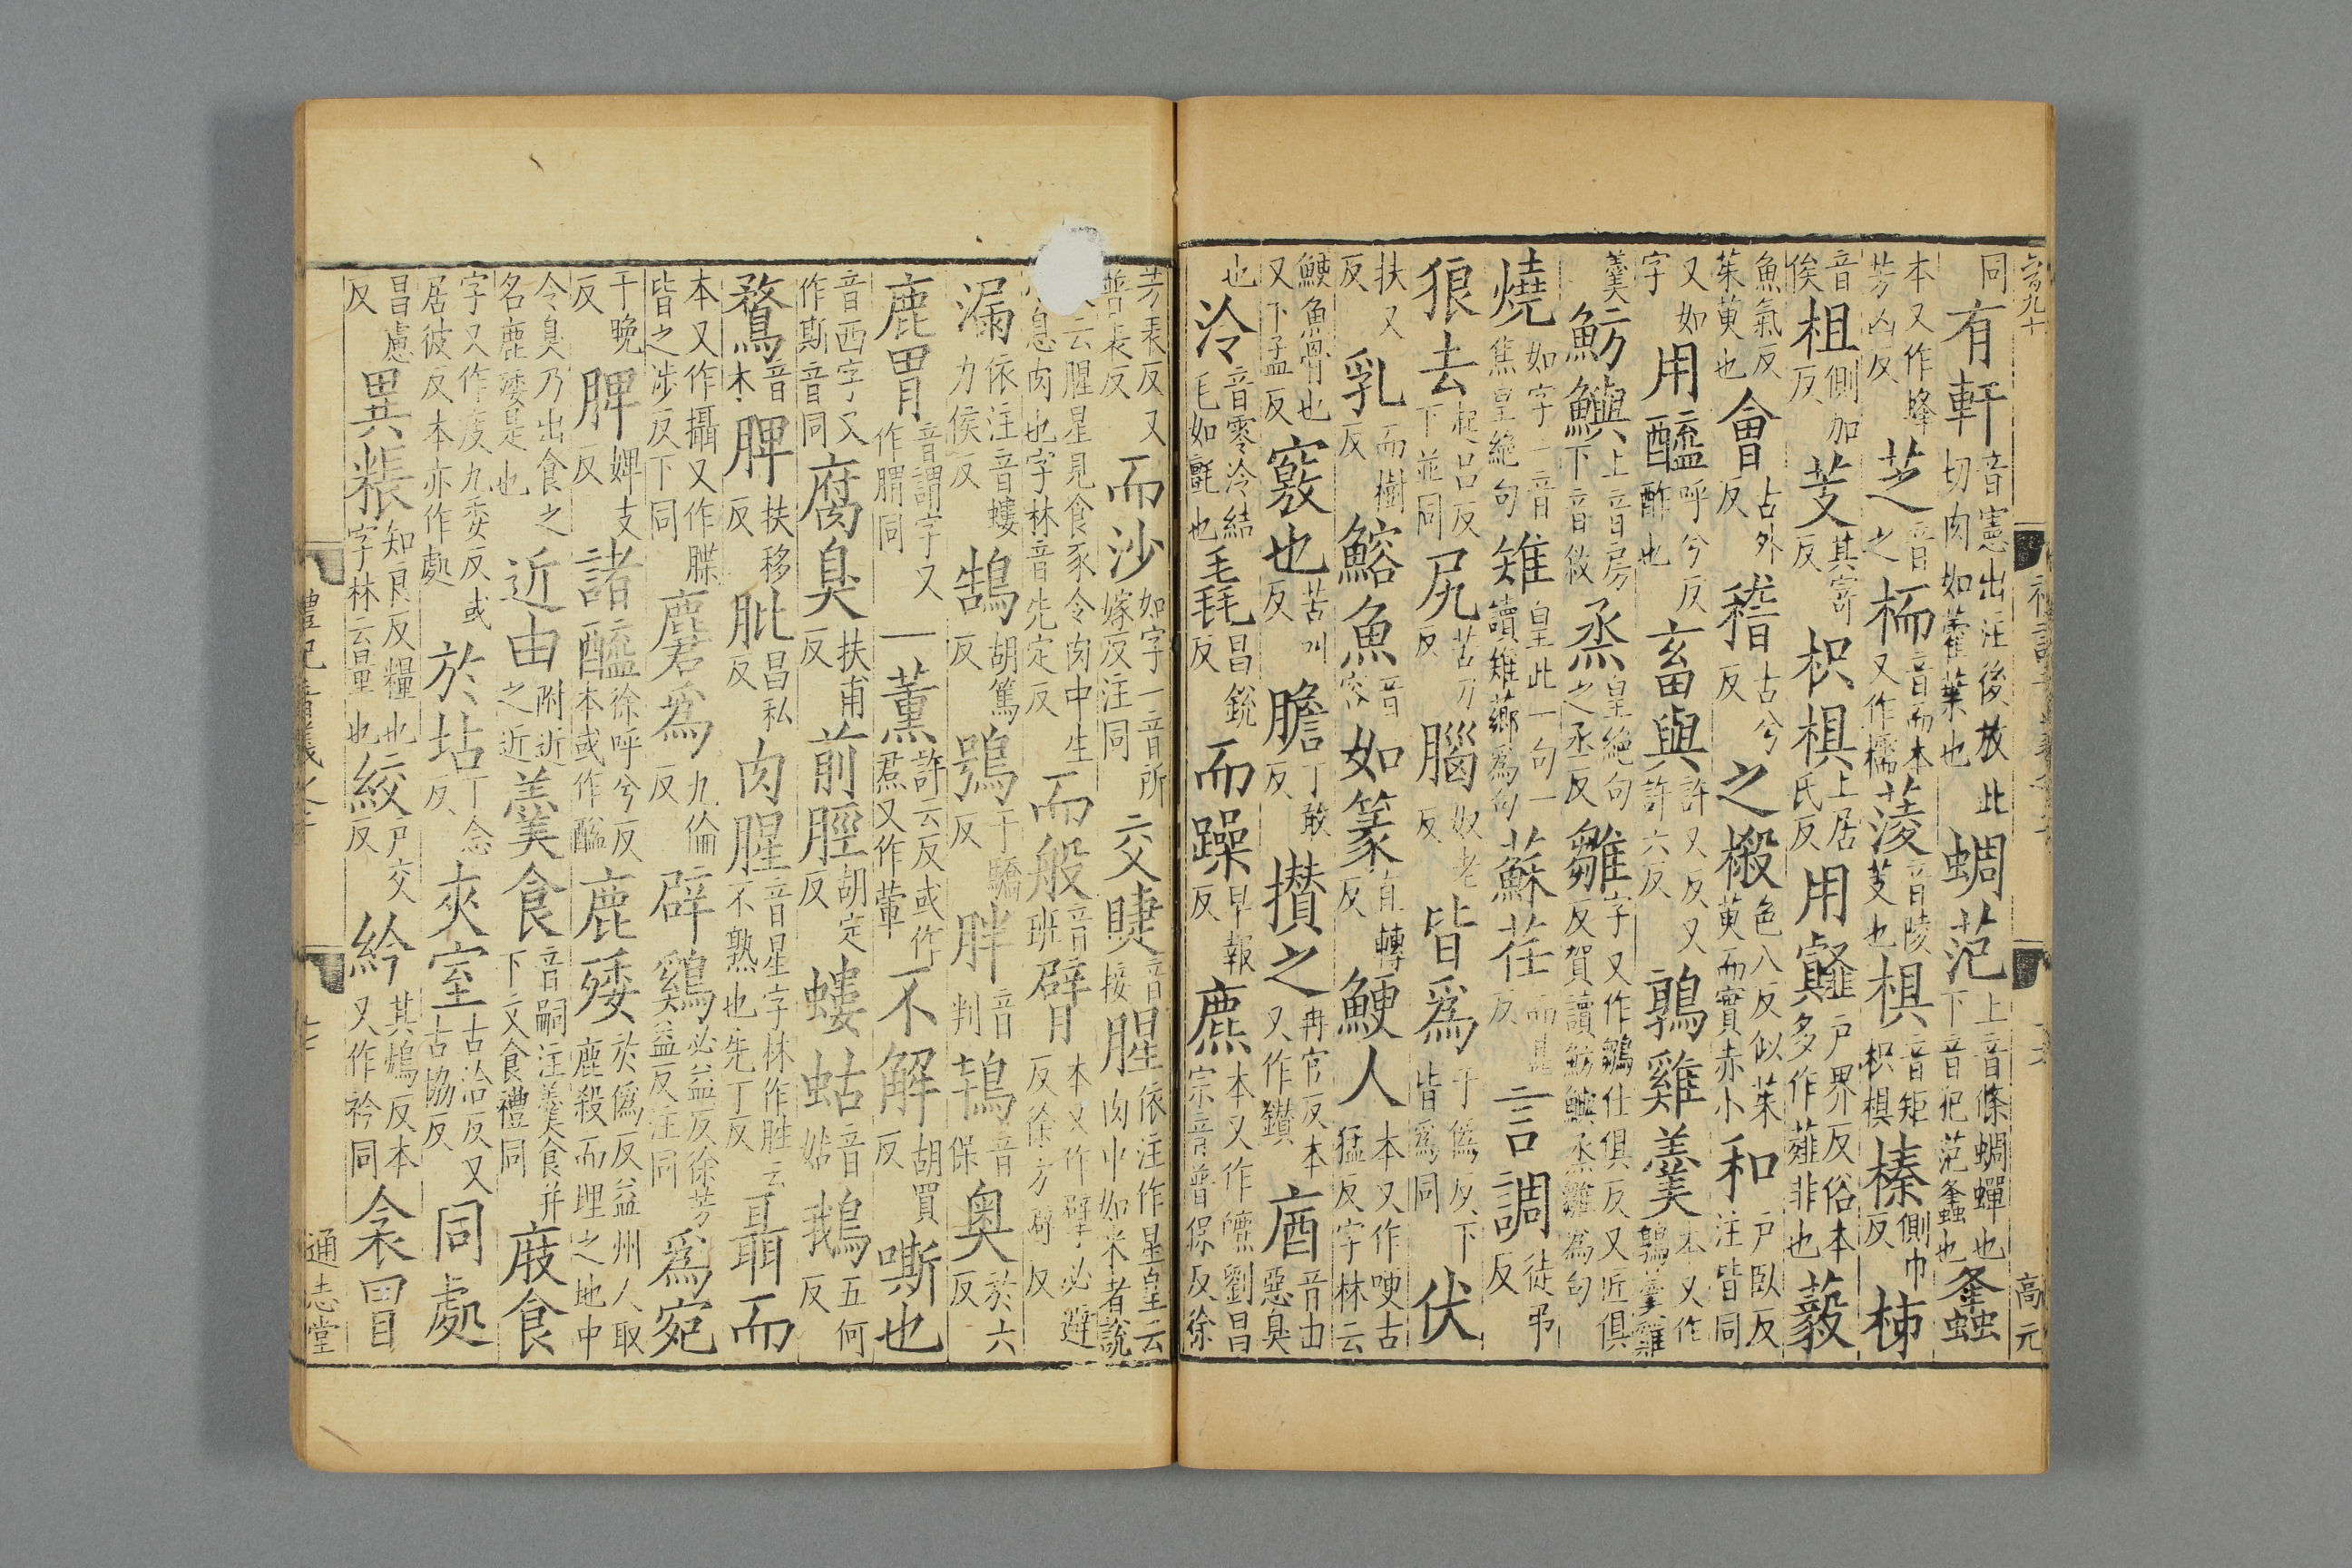 六百九十 禮記音義之二 高元
同有軒音憲出注後放此切肉如藿葉也蜩范上音條蜩蟬也下音犯范蠭也蠭
本又作蜂芳凶反芝音之栭音而本又作檽蔆音陵芰也椇音矩枳椇榛側巾反柿
音俟柤側加反芰其寄反枳椇上居氏反用䪥戶界反俗本多作薤非也藙
魚氣反茱萸也會古外反稽古兮反之樧色八反似茱萸而實赤小和戶卧反注皆同
又如字用醯呼兮反酢也畜與許又反又許六反鶉雞羹本又作鶉羹雞
羹魴鱮上音房下音敘烝皇絕句之丞反雛字又作鶵仕俱反又匠俱反賀讀魴鱮烝雛為句
燒如字一音焦皇絕句雉皇此一句一讀雉薌為句蘇荏而甚反言調徒弔反
狼去起呂反下並同尻苦刀反腦奴老反皆爲于偽反下皆爲同伏
扶又反乳而樹反鰫魚音容如篆直轉反鯁人本又作哽古猛反字林云
鯁魚骨也又下孟反竅也苦叫反膽丁敢反攢之再官反本又作鑽庮音由惡臭
也泠音零泠結毛如氈也毳昌銳反而躁早報反麃本又作皫劉昌宗音普保反徐
芳表反又普表反而沙如字一音所嫁反注同交睫音接腥依注作星皇云肉中如米者說
云腥星見食豕令肉中生息肉也字林音先定反而般音班臂本又作擘必避反徐方辟反
漏依注音螻力侯反鵠胡篤反鴞于驕反胖音判鴇音保奧於六反
鹿胃音謂字又作䐡同一薰許云反或作焄又作葷不解胡買反嘶也
音西字又作斯音同腐臭扶甫反前脛胡定反螻蛄音姑鵝五何反
鶩音木脾扶移反肶昌私反肉腥音星字林作胜云不熟也先丁反聶而
本又作攝又作牒皆之涉反下同麕爲九倫反辟雞必益反徐芳益反注同爲宛
于晚反脾婢支反諸醯徐呼兮反本或作醢鹿矮於偽反益州人取鹿殺而埋之地中
令臭乃出食之名鹿矮是也近由附近之近羹食音嗣注羹食并下文食禮同庪食
字又作庋九委反或居彼反本亦作處於坫丁念反夾室古洽反又古協反同處
昌慮反異粻知良反糧也字林云量也絞戶交反紟其鴆反本又作衿同衾冒
禮記音義之二 十七 通志堂